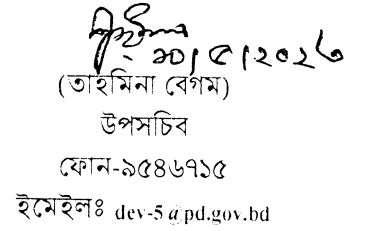 ১০/৫/২০২৩
(তাহমিনা বেগম)
উপসচিব
ফোন-৯৫৪৬৭১৫
ইমেইলঃ dev-5@pd.gov.bd